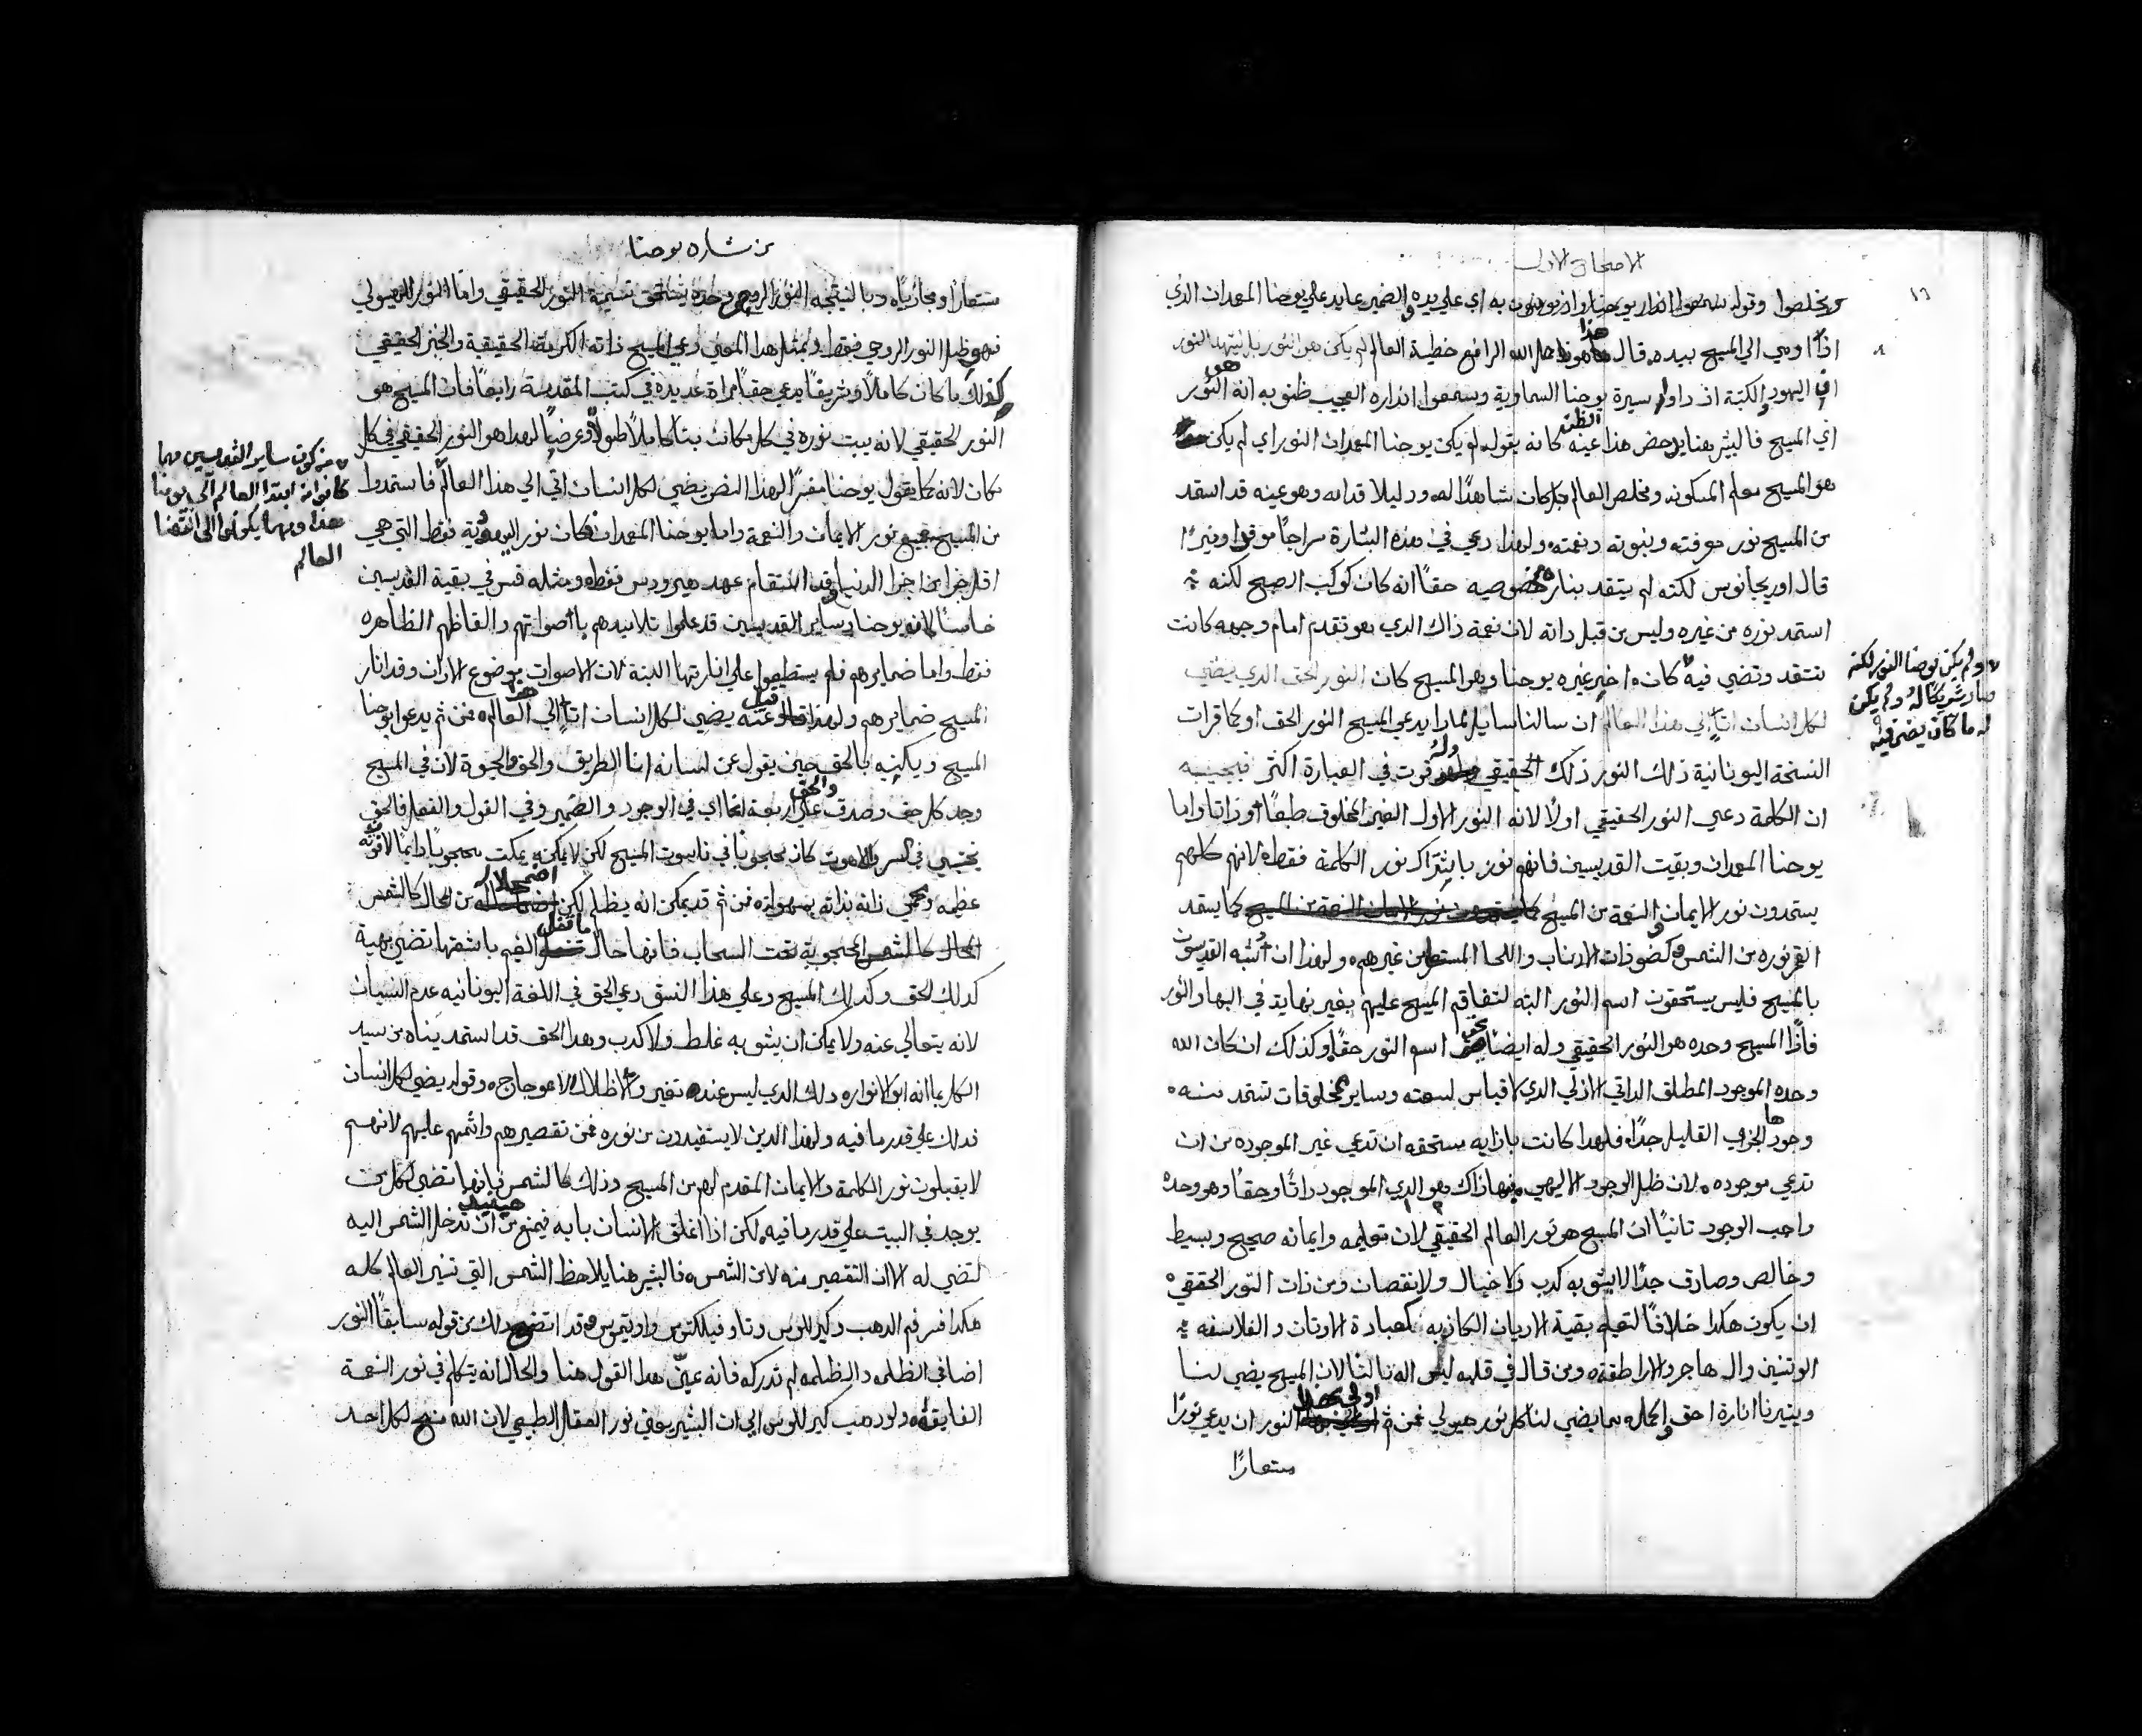 الاصحاح الاول
١٦
ويخلصوا وقوله سمعوا انذار يوحنا واذ يومنون به اي علي يده والضمير عايد علي يوحنا المعمدان الذي
اذًا اومي الي المسيح بيده قال هذا هو حمل الله الرافع خطية العالم لم يكن هو النور بل ليشهد للنور
٨
ان اليهود والكتبة اذ راوا سيرة يوحنا السماوية وسمعوا انذاره العجيب ظنو به انه هو النور
اي المسيح فالبشير هنا يدحض هذا الظن عينه كانه يقوله لم يكن يوحنا المعمدان النور اي لم يكن
هو المسيح معلم المسكونه ومخلص العالم بل كان شاهدًا له ودليلا قدامه وهو عينه قد استمد
من المسيح نور معرفته ونبوته ونعمته ولهذا دعي في هذه البشارة سراجًا موقدا ومنيرًا
قال اوريجانوس لكنه لم يتقد بنار خصوصيه حقًا انه كان كوكب الصبح لكنه
استمد نوره من غيره وليس من قبل ذاته لان نعمة ذاك الدي هو تقدم امام وجهه كانت
تتقد وتضي فيه كان اخير غيره يوحنا وهو المسيح كان النور الحق الدي يضي
ولم يكن يوحنا النور لكنه
صار شريكًا له ولم يكن
له ما كان يضي فيه
لكل انسان اتٍ الي هذا العالم ان سالنا سايل لماذا يدعي المسيح النور الحق او كما قرات
النسخة اليونانية ذلك النور ذلك الحقيقي وله قوت في العبارة اكثر فيجيبه
ان الكلمة دعي النور الحقيقي اولًا لانه النور الاول الغير المخلوق طبعًا وذاتا واما
يوحنا المعمدان وبقيت القديسين فانهم نور باشتراك نور الكلمة فقط لانهم كلهم
يستمدون نور الايمان والنعمة من المسيح كما يستمد
القمر نوره من الشمس وكضو ذات الاذناب واللحا المستعار من غيرهم ولهذا ان اشبه القديسون
بالمسيح فليس يستحقون اسم النور البته لتفاقم المسيح عليهم بغير نهاية في البها والنور
فاذًا المسيح وحده هو النور الحقيقي وله ايضًا يحق اسم النور حقًا وكذلك ان كان الله
وحده الموجود المطلق الداتي الازلي الدي لا قياس لسعته وساير المخلوقات تستمد منه
وجودها الجزي القليل جدًا فلهدا كانت بازايه مستحقه ان تدعي غير الموجوده من ان
تدعي موجوده لان ظل الوجود الالهي بها ذاك هو الدي الموجود ذاتًا وحقًا وهو وحده
واجب الوجود تانيًا ان المسيح هو نور العالم الحقيقي لان تعليمه وايمانه صحيح وبسيط
وخالص وصادق جدًا لا يشوبه كدب ولا خيال ولا نقصان ومن ذات النور الحقيقي
ان يكون هكدا خلافًا لتعليم بقية الاديان الكاذبه كعبادة الاوتان والفلاسفه
الوتنيين وال هاجر والاراطقة ومن قال في قلبه ليس اله تالثا لان المسيح يضي لنا
وينيرنا انارة احق واكمل مما يضي لنا كل نور هيولي فمن ثم اولي بهذا النور ان يدعي نورًا
مستعارًا
من بشارة يوحنا
مستعارًا ومجازيًا وبالنتيجه النور الروحي وحده يستحق تسمية النور الحقيقي واما النور الهيولي
فهو ظل النور الروحي فقط وبمثل هذا المعني دعي المسيح ذاته الكرمة الحقيقية والخبز الحقيقي
كذلك ما كان كاملًا وشريفًا يدعي حقًا مراة عديدة في كتب المقدسة رابعًا فان المسيح هو
النور الحقيقي لانه يبت نوره في كل مكان بتًا كاملًا طولًا وعرضًا لهدا هو النور الحقيقي في كل
مكان لانه كما يقول يوحنا مفسرًا لهذا النص يضي لكل انسان اتي الي هذا العالم فاستمدوا
من كون ساير القديسين مهما
كانوا من ابتدا العالم الي يومنا
هذا ومهما يكونوا الي انقضا
العالم
من المسيح جميع نور الايمان والنعمة واما يوحنا المعمدان فكان نور اليهودية فقط التي هي
اقل جزا من اجزا الدنيا وقد استقام عهد هيرودس فقط ومثله قس في بقية القديسين
خامسًا لان يوحنا وساير القديسين قد علموا تلاميدهم باصواتهم والفاظهم الظاهره
فقط واما ضمايرهم فلم يستطيعوا علي انارتها البتة لان الاصوات موضوع الادان وقد انار
المسيح ضمايرهم ولهذا قيل عنه يضي لكل انسان اتٍ الي هذا العالم فمن ثم يدعوا يوحنا
المسيح ويكنيه بالحق حين يقول عن لسانه انا الطريق والحق والحيوة لان في المسيح
وجد كل حق وصدق والحق علي اربعة انحا اي في الوجود والضمير وفي القول والفعل فالحق
يختشي في السر واللاهوت كان محجوبًا في ناسوت المسيح لكن لا يمكنه يمكت محجوبًا دايمًا لان قوته
عظيمه ويحمي ذاته بذاته بسهوله فمن ثم قد يمكن انه يظلم لكن اضمحلاله من المحال كالشمس
المحجوبة تحت السحاب فانها حال ما تفلق الغيم باشعتها تضي بهية
كدلك الحق وكدلك المسيح وعلي هذا النسق دعي الحق في اللغة اليونانيه عدم النسيان
لانه يتعالي عنه ولا يمكن ان يشوبه غلط ولا كدب وهدا الحق قد استمديناه من سيد
الكل بما انه ابو الانوار دلك الدي ليس عنده تغير ولا ظلال الاعوجاج وقوله يضي لكل انسان
فدلك علي قدر ما فيه ولهذا الدين لا يستفيدون من نوره فمن تقصيرهم واثمهم عليهم لانهم
لا يقبلون نور الكلمة والايمان المقدم لهم من المسيح وذلك كالشمس فانها تضي لكل من
يوجد في البيت علي قدر ما فيه لكن اذا اغلق الانسان بابه فيمنع حينيذٍ من ان تدخل الشمس اليه
لتضي له الا ان التقصير منه لا من الشمس فالبشير هنا يلاحظ الشمس التي تنير العالم كله
هكدا فسر فم الدهب وكيرللوس وتاوفيلكتوس واوتيموس وقد اتضح دلك من قوله سابقًا النور
اضا في الظلمه والظلمه لم تدركه فانه عين هدا القول هنا والحال انه يتكلم في نور النعمة
الفايقة ولو دهب كيرللوس الي ان البشير يعني نور العقل الطبيعي لان الله منح لكل احد